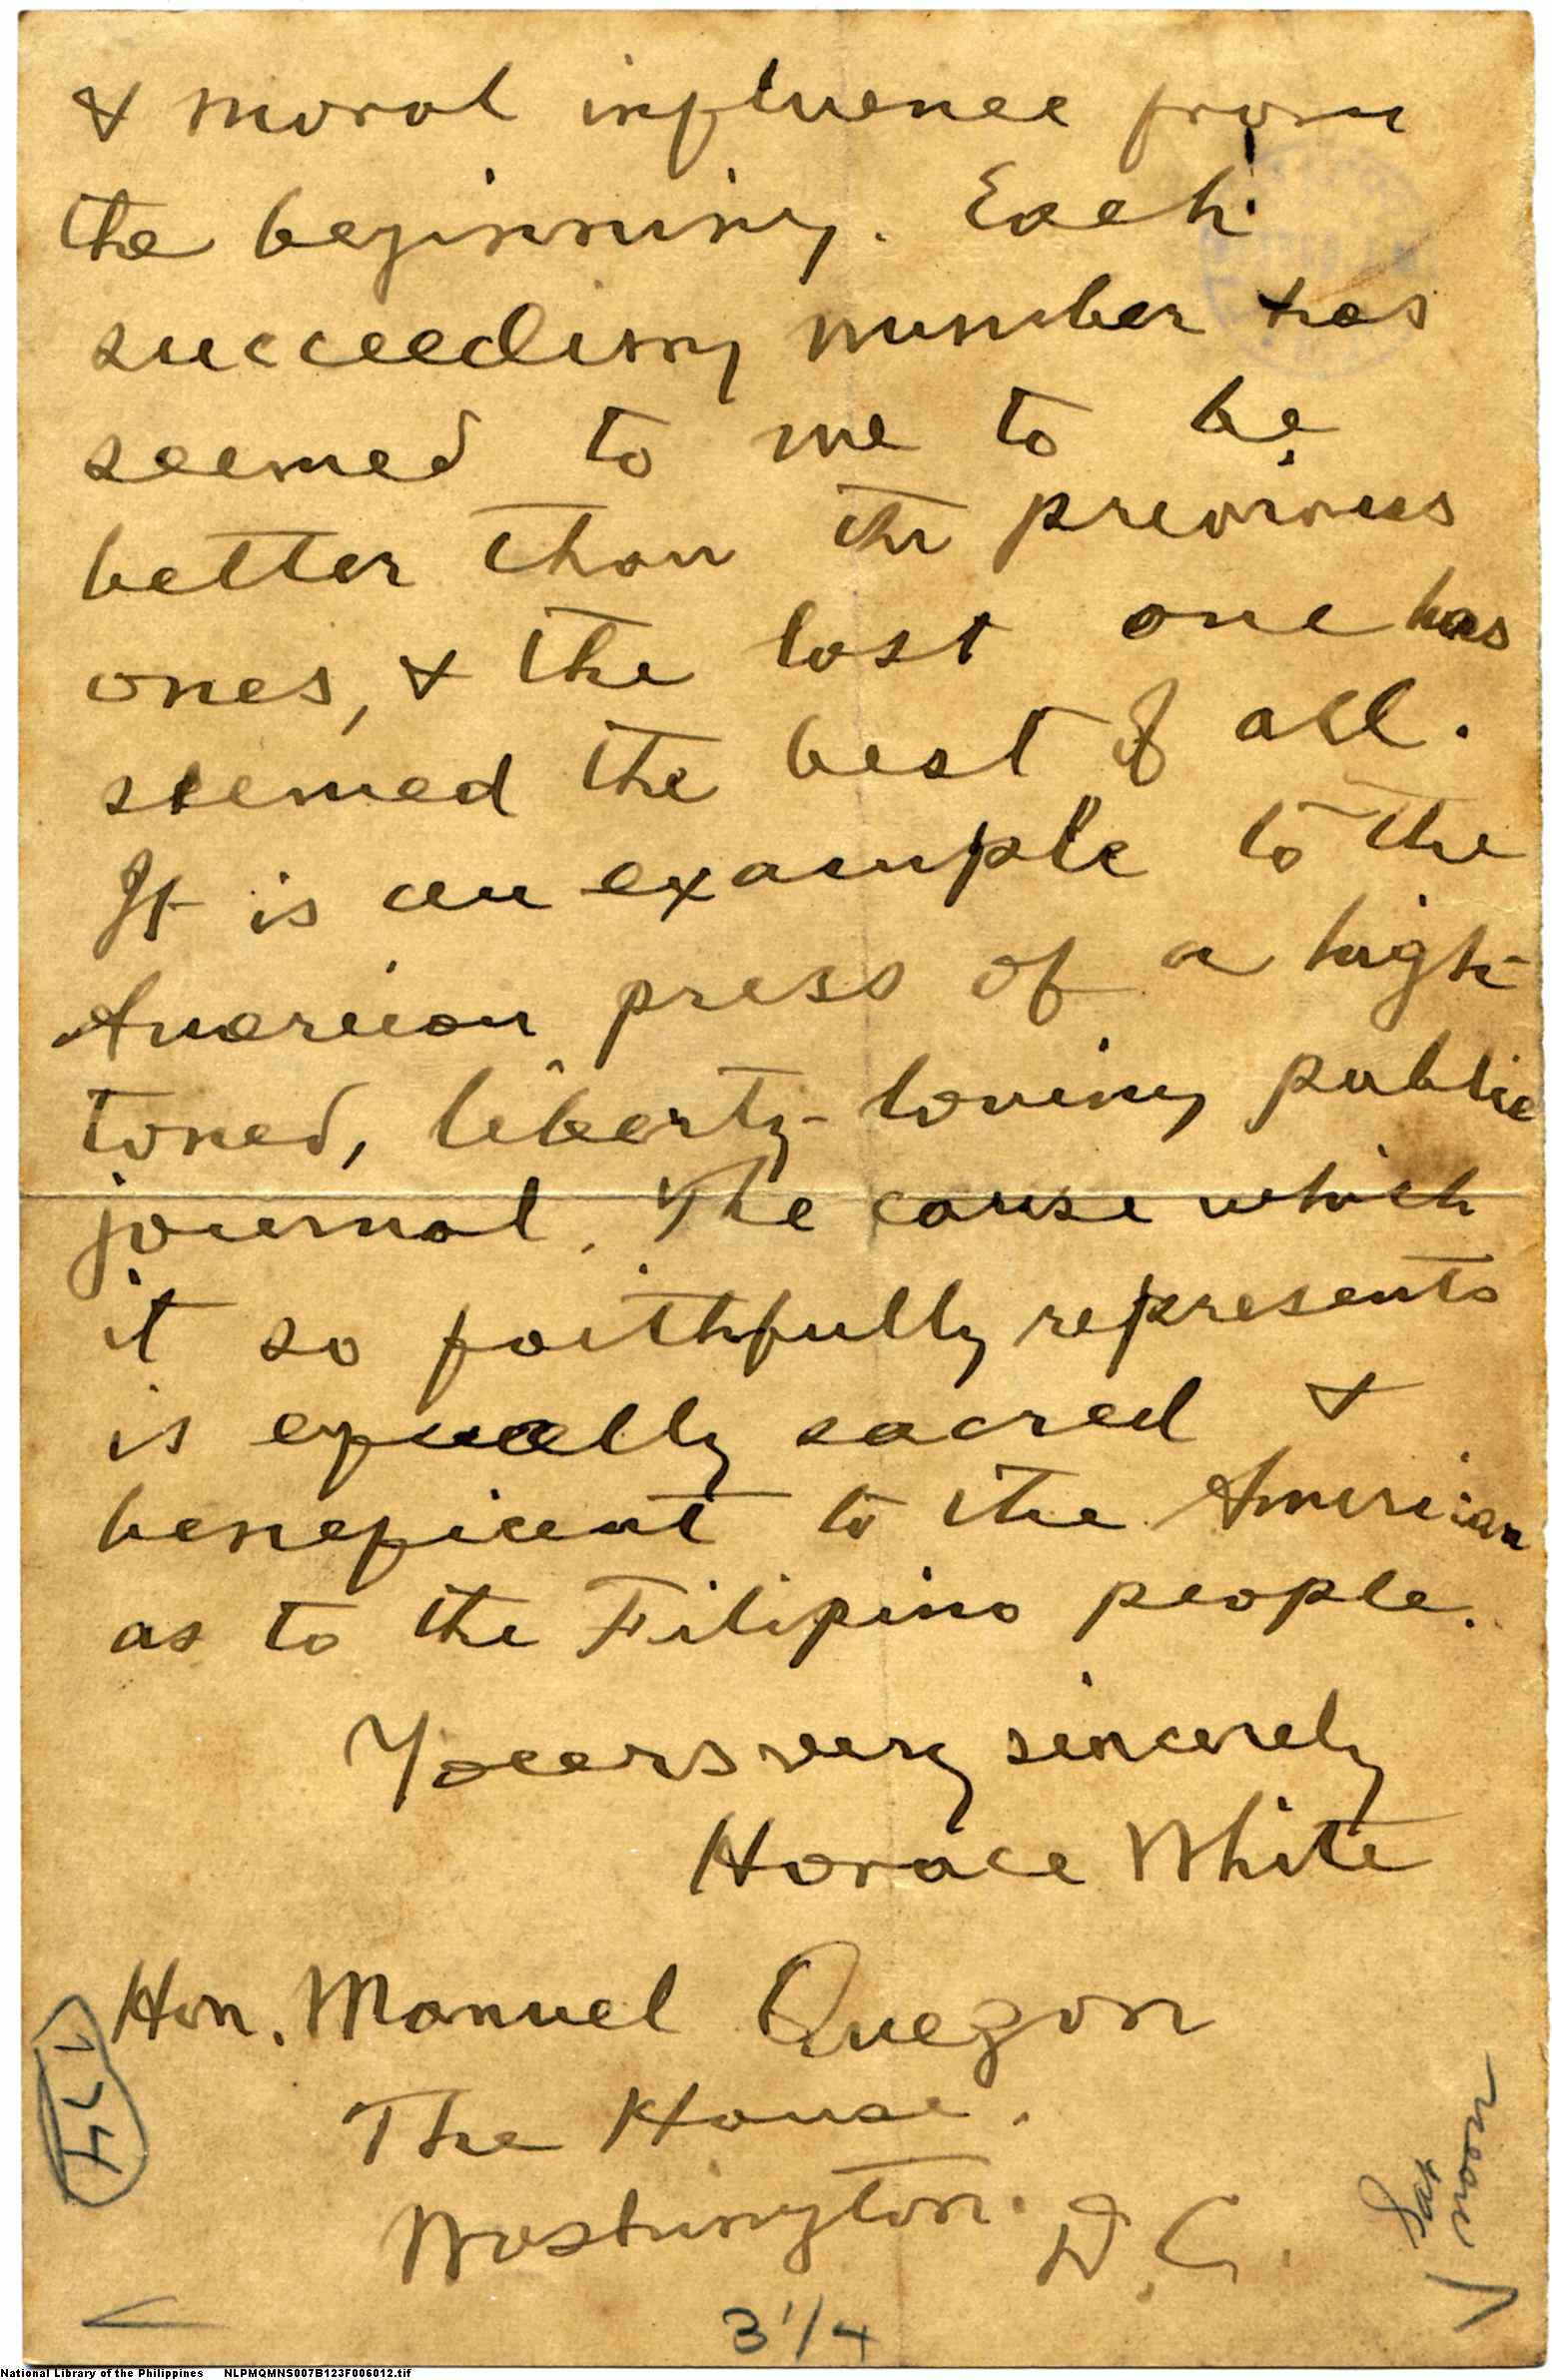 & moral influence from
the beginning. Each
succeeding number has
seemed to me to be
better than the previous
ones, & the last one has
seemed the best of all.
It is an example to the
American press of a high-
toned, liberty-loving public
journal. The cause which
it so faithfully represents
is equally sacred &
beneficent to the American
as to the Filipino people.
Yours very sincerely
Horace White
Hon. Manuel Quezon
The House.
Washington. D.C.
3 1/4
National Library of the Philippines NLPMQMNS007B123F006012.tif